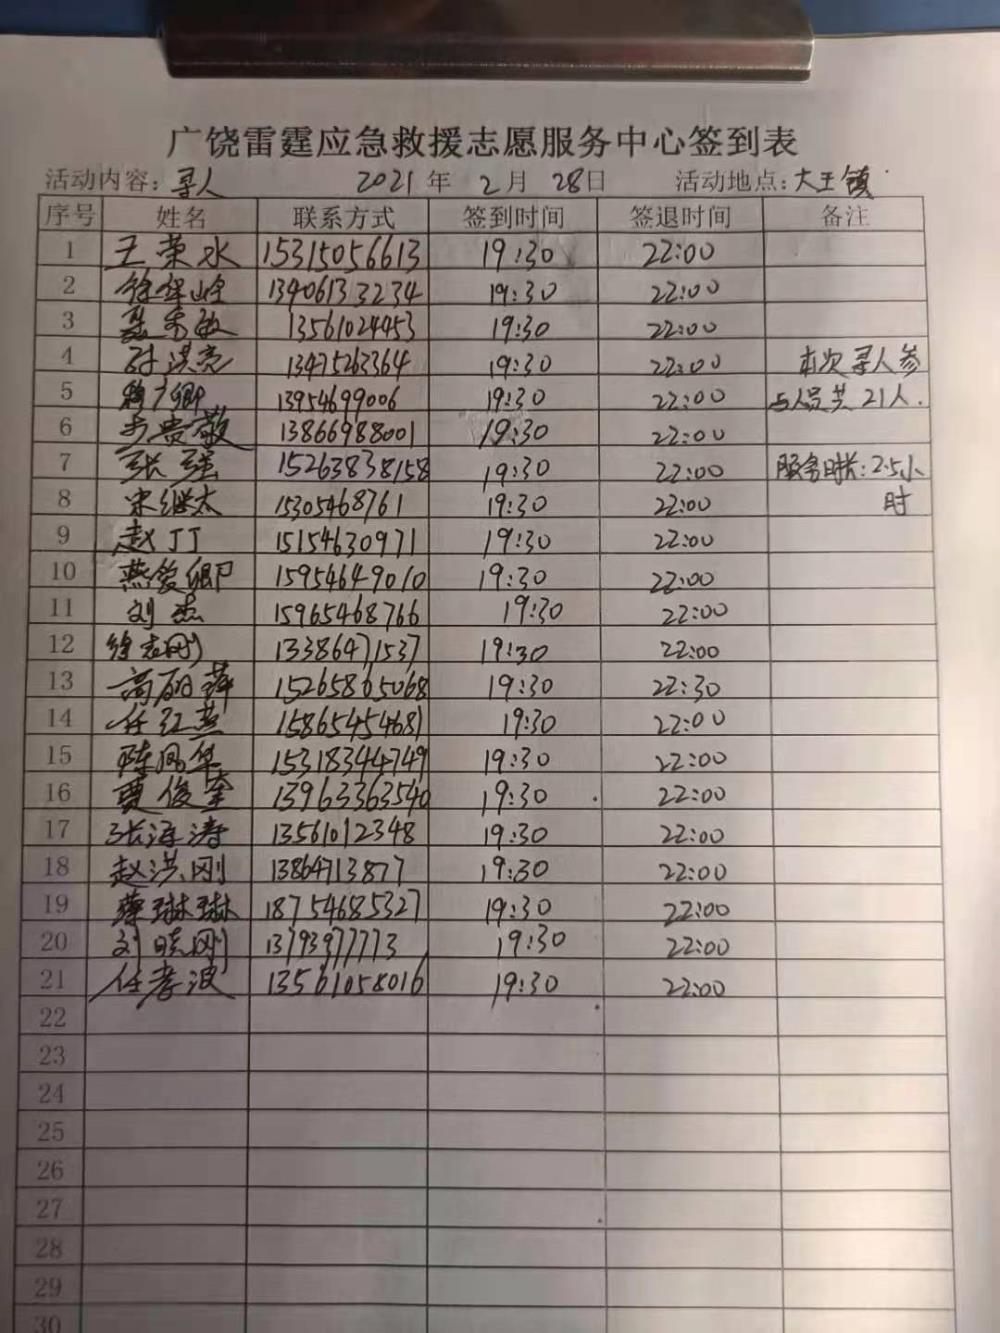 广饶雷霆应急救援志愿服务中心签到表
活动内容：寻人 2021年 2月 28日 活动地点：大王镇
序号 姓名 联系方式 签到时间 签退时间 备注
1 王荣水 15315056613 19:30 22:00
2 13406133234 19:30 22:00
3 13561024453 19:30 22:00
4 孙洪亮 13475263364 19:30 22:00 本次寻人参
5 13954699006 19:30 22:00 与人员共21人.
6 13866988001 19:30 22:00
7 张强 15263838158 19:30 22:00 服务时长:2.5小
8 宋继太 15305468761 19:30 22:00 时
9 赵丁丁 15154630971 19:30 22:00
10 燕爱卿 15954649010 19:30 22:00
11 刘杰 15965468766 19:30 22:00
12 徐志刚 13386471537 19:30 22:00
13 高丽萍 15265865068 19:30 22:30
14 任红燕 15865454681 19:30 22:00
15 陈凤华 15318344749 19:30 22:00
16 贾俊奎 13963363540 19:30 22:00
17 张海涛 13561012348 19:30 22:00
18 赵洪刚 13864713877 19:30 22:00
19 琳琳 18754685327 19:30 22:00
20 刘晓刚 13793977773 19:30 22:00
21 任孝波 13561058016 19:30 22:00
22
23
24
25
26
27
28
29
30